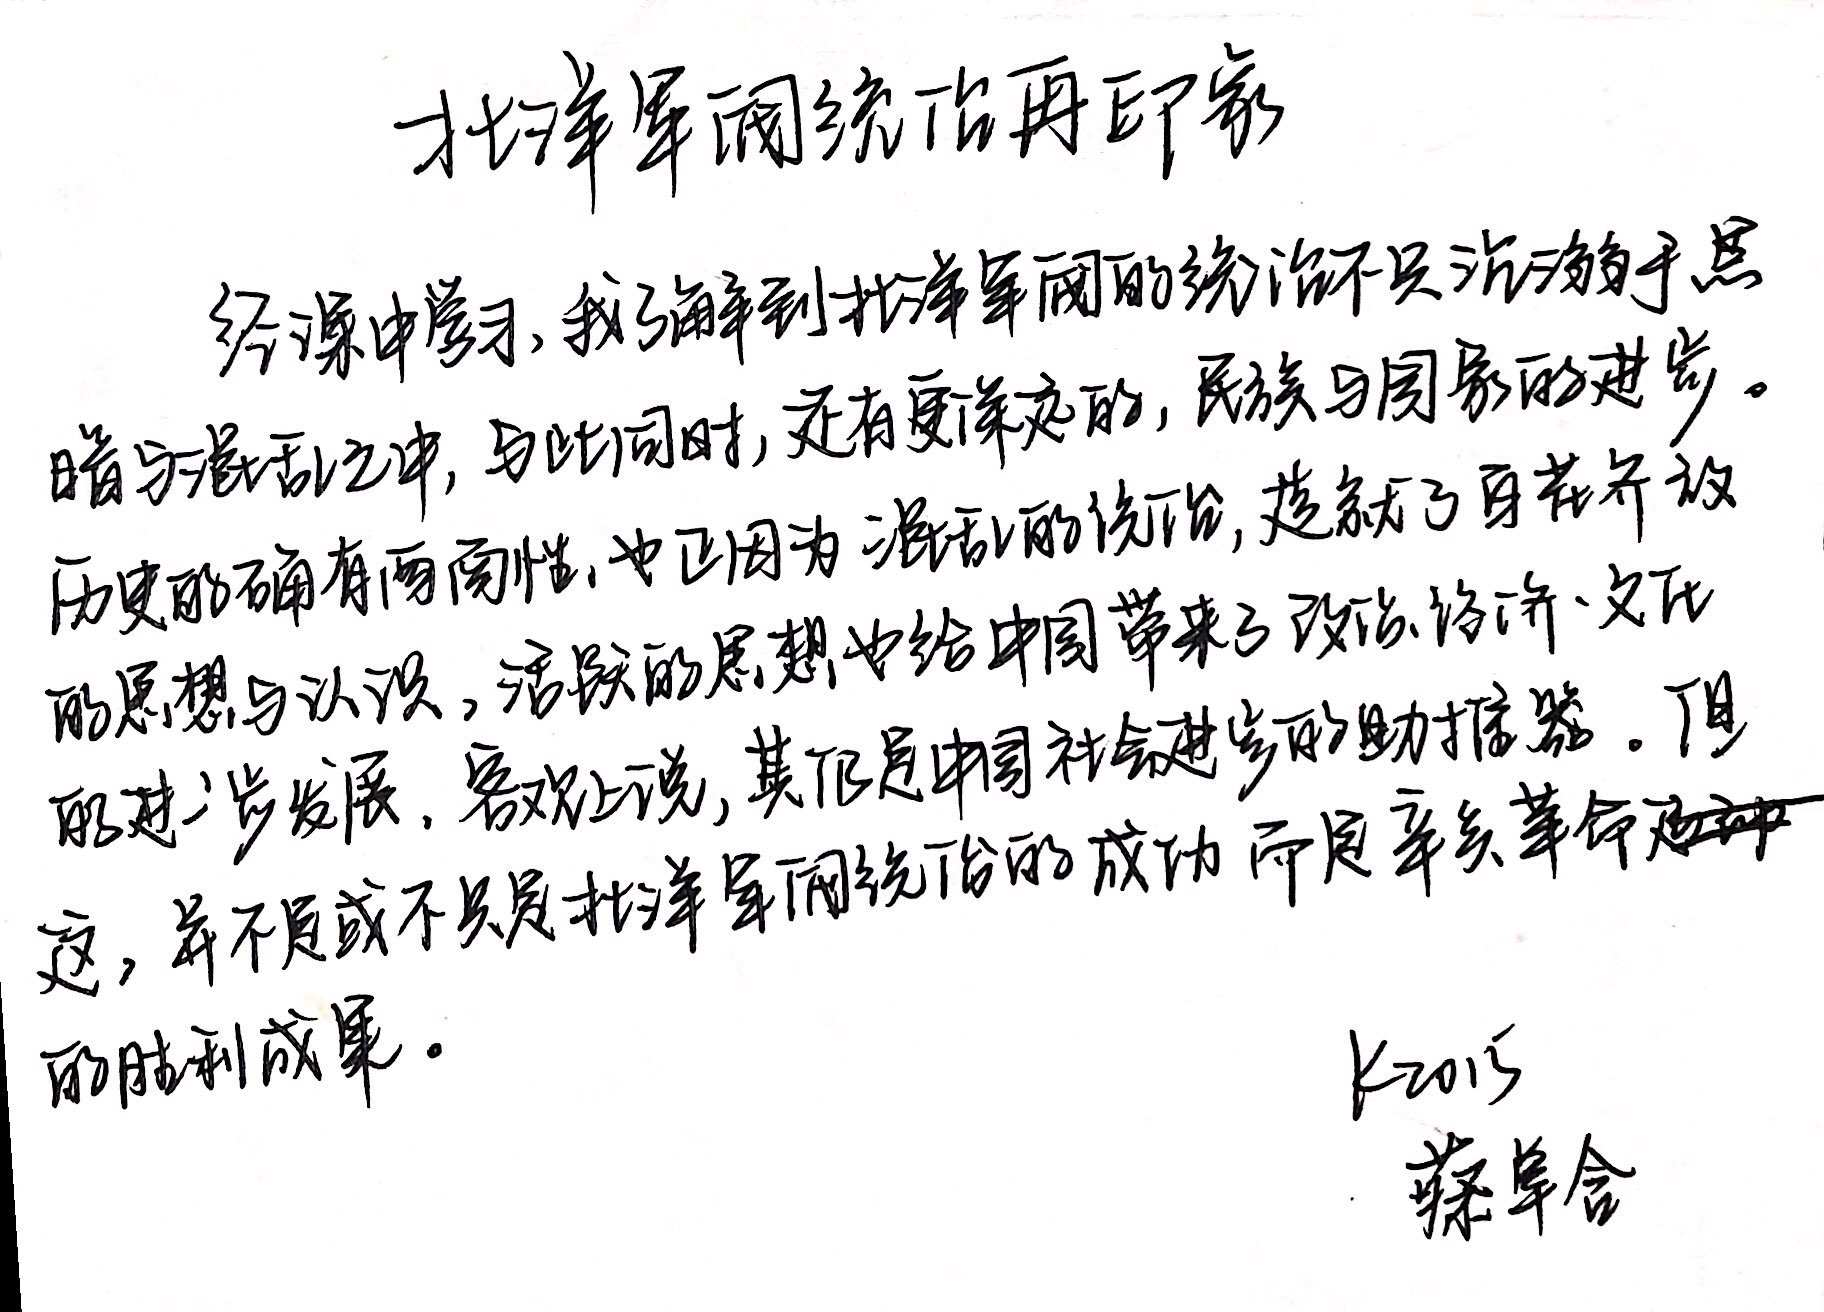 北洋军阀统治再印象
经课中学习，我了解到北洋军阀的统治不只沉溺于黑
暗与混乱之中，与此同时，还有更深远的，民族与国家的进步。
历史的确有两面性，也正因为混乱的统治，造就了百花齐放
的思想与认识，活跃的思想也给中国带来了政治、经济、文化
的进一步发展，客观上说，其仍是中国社会进步的助推器。但
这，并不是或不只是北洋军阀统治的成功而是辛亥革命
的胜利成果。
K2015
蔡阜含